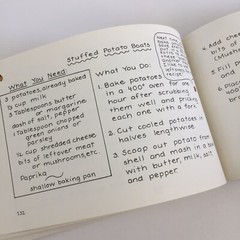 Stuffed Potato Boats
What You Need:
3 potatoes, already baked
1/3 cup milk
3 Tablespoons butter
or margarine
dash of salt, pepper
1 Tablespoon chopped
green onions or
parsley
1/2 cup shredded cheese
bits of leftover meat
or mushrooms, etc.
Paprika
shallow baking pan
132
What You Do:
1. Bake potatoes
in a 400° oven for one
hour after scrubbing
them well and pricking
each one with a fork.
2. Cut cooled potatoes in
halves lengthwise.
3. Scoop out potato from
shell and mash in a bowl
with butter, milk, salt,
and pepper.
next
you
another
I like to
leftover
recipe!
4. Add chee
bits of
(Mush
5. Fill po
6. place